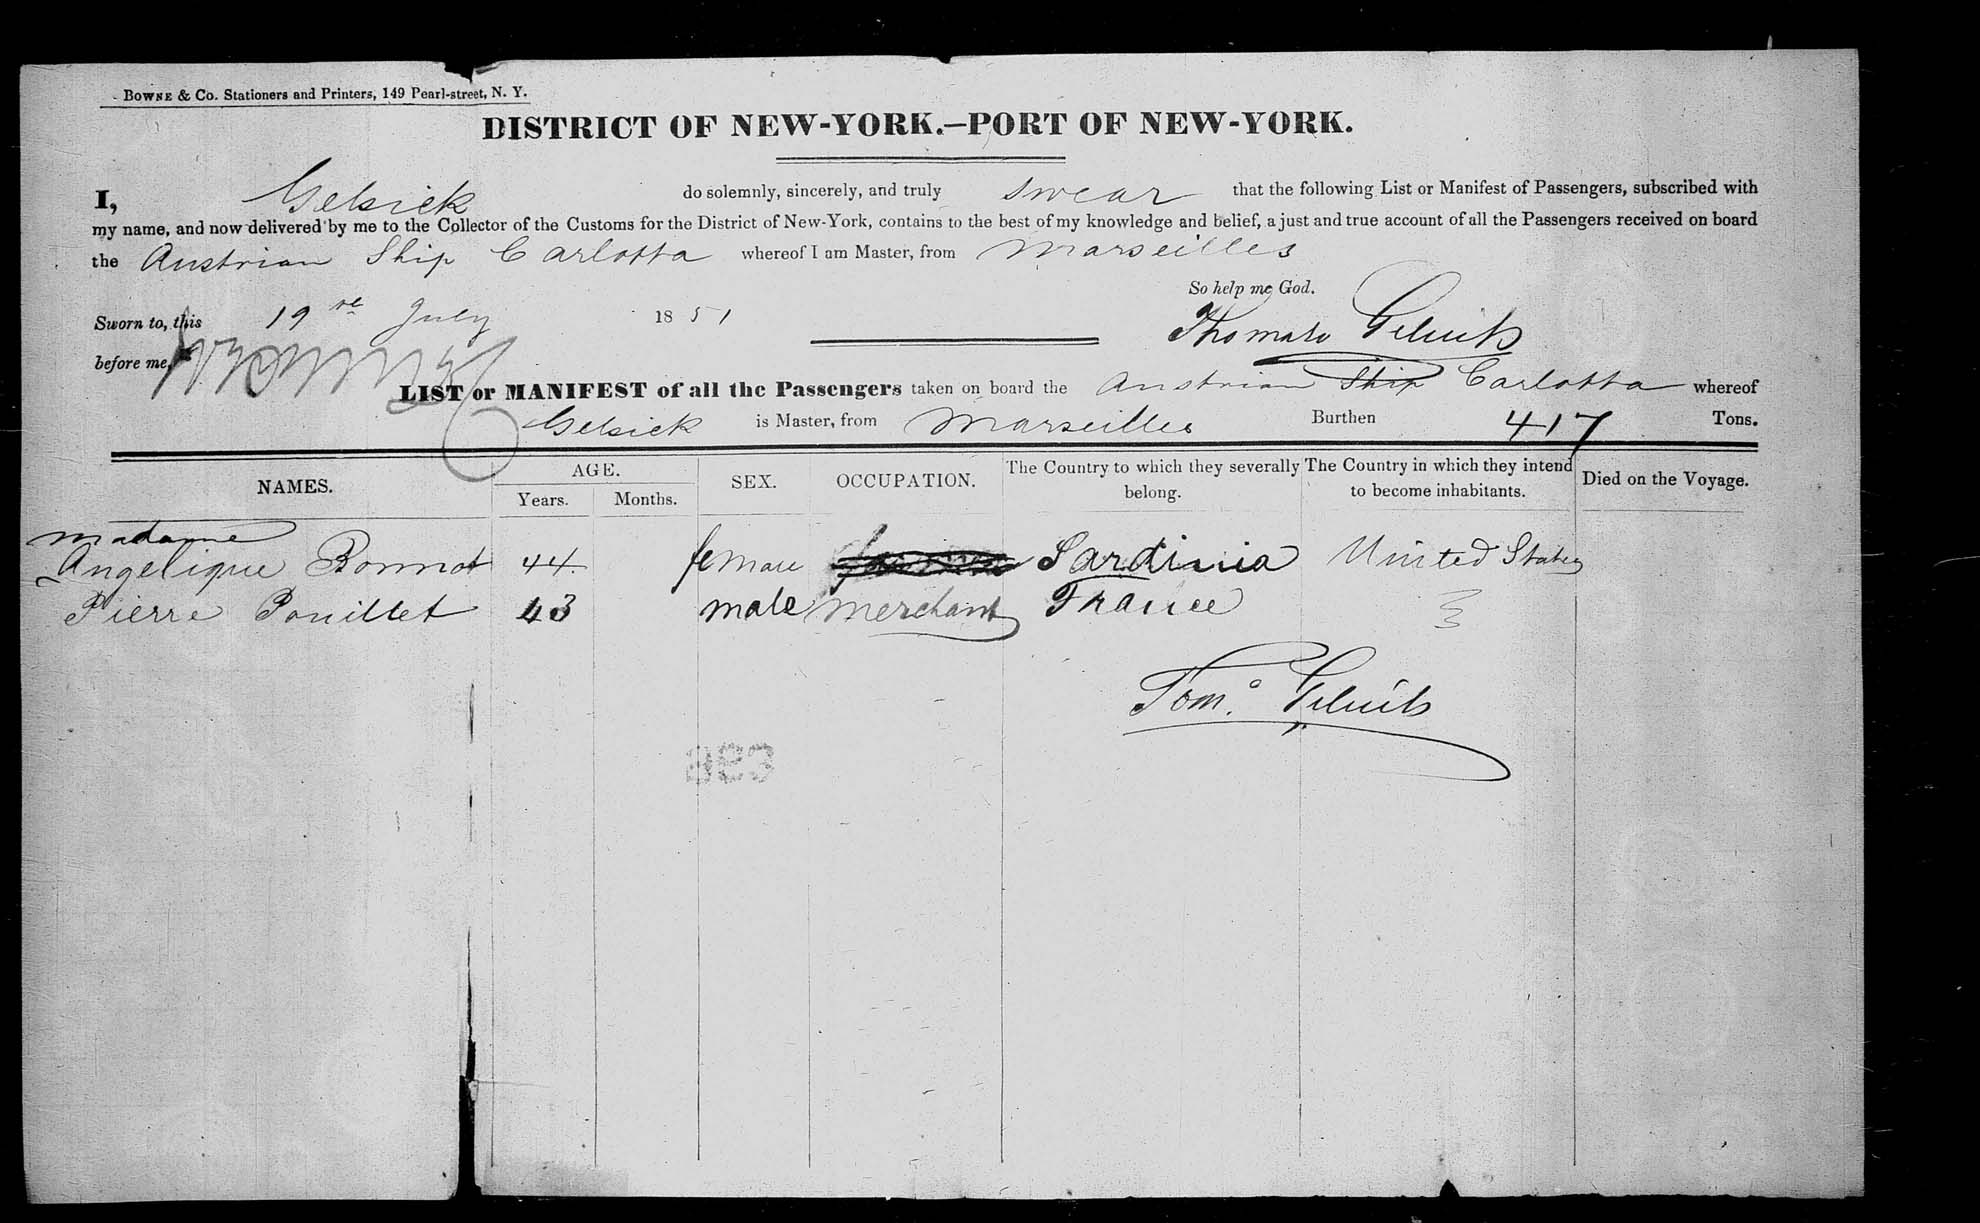 BOWNE & Co. Stationers and Printers, 149 Pearl-street, N. Y.
DISTRICT OF NEW-YORK.—PORT OF NEW-YORK.
I, Gelsick do solemnly, sincerely, and truly swear that the following List or Manifest of Passengers, subscribed with
my name, and now delivered by me to the Collector of the Customs for the District of New-York, contains to the best of my knowledge and belief, a just and true account of all the Passengers received on board
the Austrian Ship Carlotta whereof I am Master, from Marseilles
So help me God.
Sworn to, this 19 July 1851
Thomaso
before me,
LIST or MANIFEST of all the Passengers taken on board the Austrian Ship Carlotta whereof
Gelsick is Master, from Marseilles Burthen 417 Tons.
NAMES. AGE. SEX. OCCUPATION. The Country to which they severally belong. The Country in which they intend to become inhabitants. Died on the Voyage.
Years. Months.
madame
Angelique Bonnot 44 female Sardinia United States
Pierre Pouillet 43 male merchant France
Tomo.